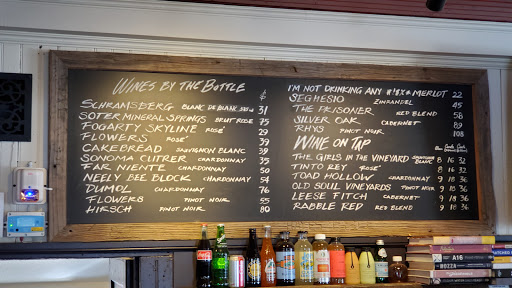 WINES BY THE BOTTLE
SCHRAMSBERG BLANC DE BLANC 31
SOTER MINERAL SPRINGS BRUT ROSE 75
FOGARTY SKYLINE ROSÉ 29
FLOWERS ROSÉ 39
CAKEBREAD SAUVIGNON BLANC 39
SONOMA CUTRER CHARDONNAY 35
FAR NIENTE CHARDONNAY 50
NEELY BEE BLOCK CHARDONNAY 54
DUMOL CHARDONNAY 76
FLOWERS PINOT NOIR 55
HIRSCH PINOT NOIR 80
I'M NOT DRINKING ANY #!&X* MERLOT 22
SEGHESIO ZINFANDEL 45
THE PRISONER RED BLEND 58
SILVER OAK CABERNET 89
RHYS PINOT NOIR 108
WINE ON TAP
THE GIRLS IN THE VINEYARD SAUVIGNON BLANC 8 16 32
TINTO REY ROSE 8 16 32
TOAD HOLLOW CHARDONNAY 9 18 36
OLD SOUL VINEYARDS PINOT NOIR 9 18 36
LEESE FITCH CABERNET 9 18 36
RABBLE RED RED BLEND 9 18 36
A16
BOZZA